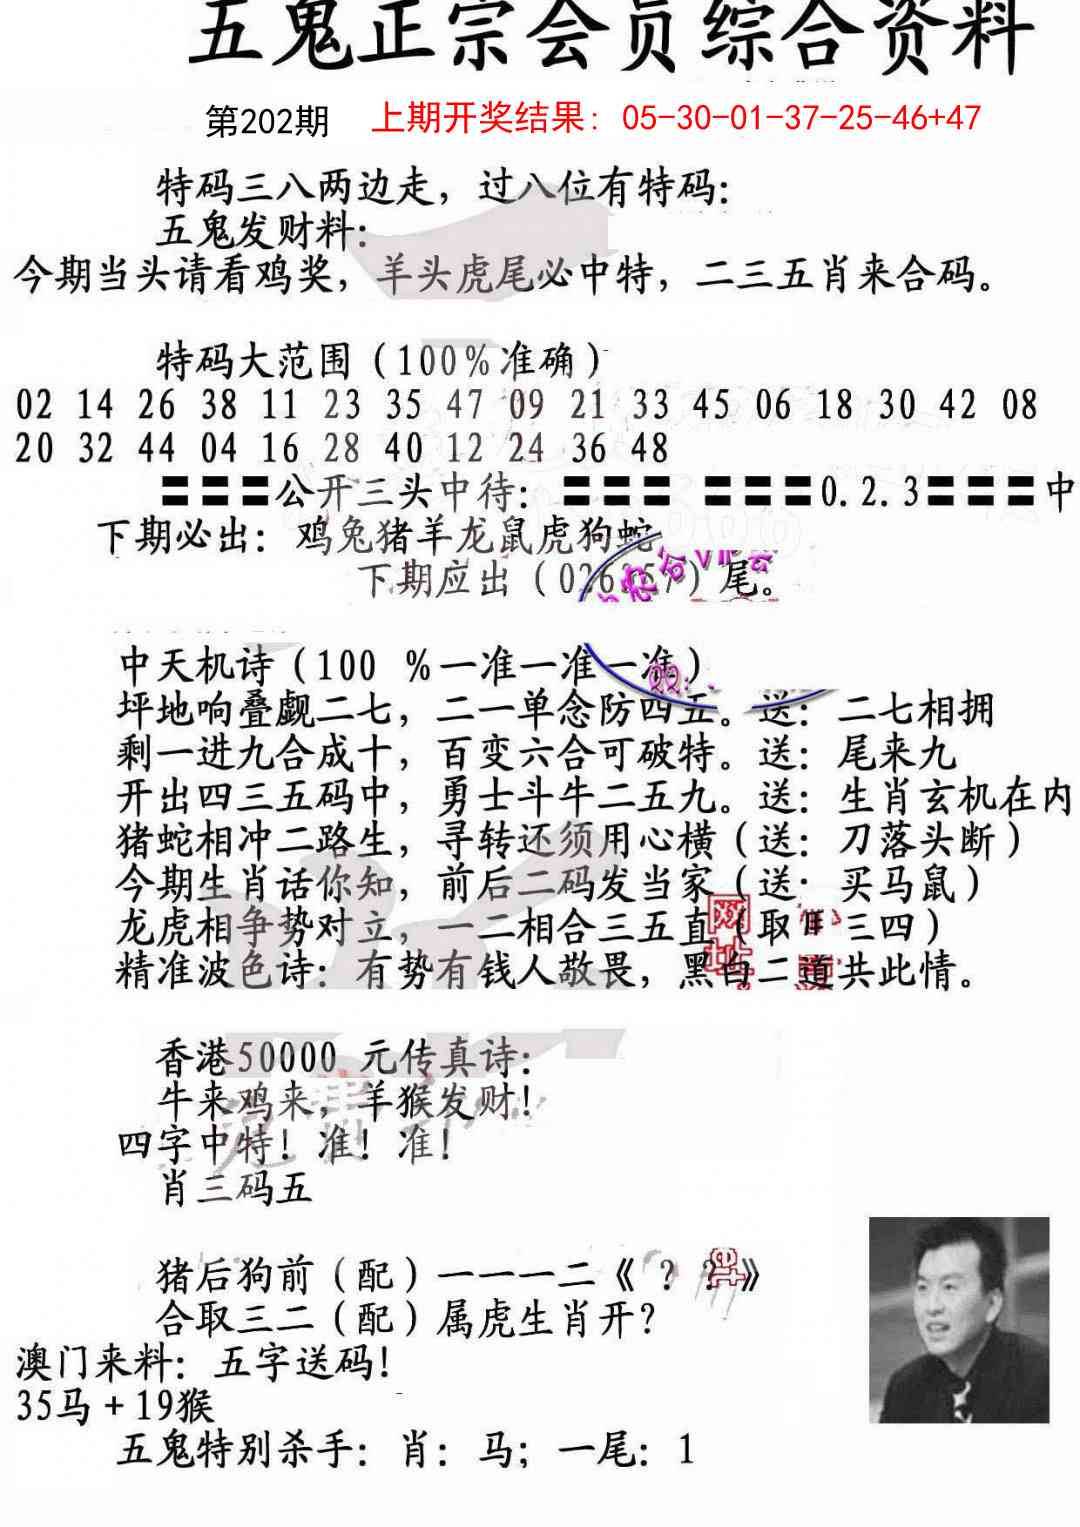 五鬼正宗会员综合资料
第202期 上期开奖结果: 05-30-01-37-25-46+47
特码三八两边走，过八位有特码:
五鬼发财料:
今期当头请看鸡奖，羊头虎尾必中特，二三五肖来合码。
特码大范围（100%准确）
02 14 26 38 11 23 35 47 09 21 33 45 06 18 30 42 08
20 32 44 04 16 28 40 12 24 36 48
〓〓〓公开三头中待: 〓〓〓 〓〓〓0.2.3〓〓〓中
下期必出: 鸡兔猪羊龙鼠虎狗蛇
下期应出（026357）尾。
中天机诗（100 %一准一准一准）
坪地响叠觑二七，二一单念防四五。送: 二七相拥
剩一进九合成十，百变六合可破特。送: 尾来九
开出四三五码中，勇士斗牛二五九。送: 生肖玄机在内
猪蛇相冲二路生，寻转还须用心横（送: 刀落头断）
今期生肖话你知，前后二码发当家（送: 买马鼠）
龙虎相争势对立，一二相合三五直（取 三四）
精准波色诗: 有势有钱人敬畏，黑白二道共此情。
香港50000 元传真诗:
牛来鸡来，羊猴发财!
四字中特! 准! 准!
肖三码五
猪后狗前（配）一一一二《 ? ? 》
合取三二（配）属虎生肖开?
澳门来料: 五字送码!
35马+19猴
五鬼特别杀手: 肖: 马; 一尾: 1
网址